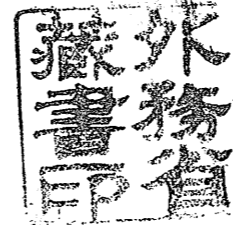 外務省
藏書印